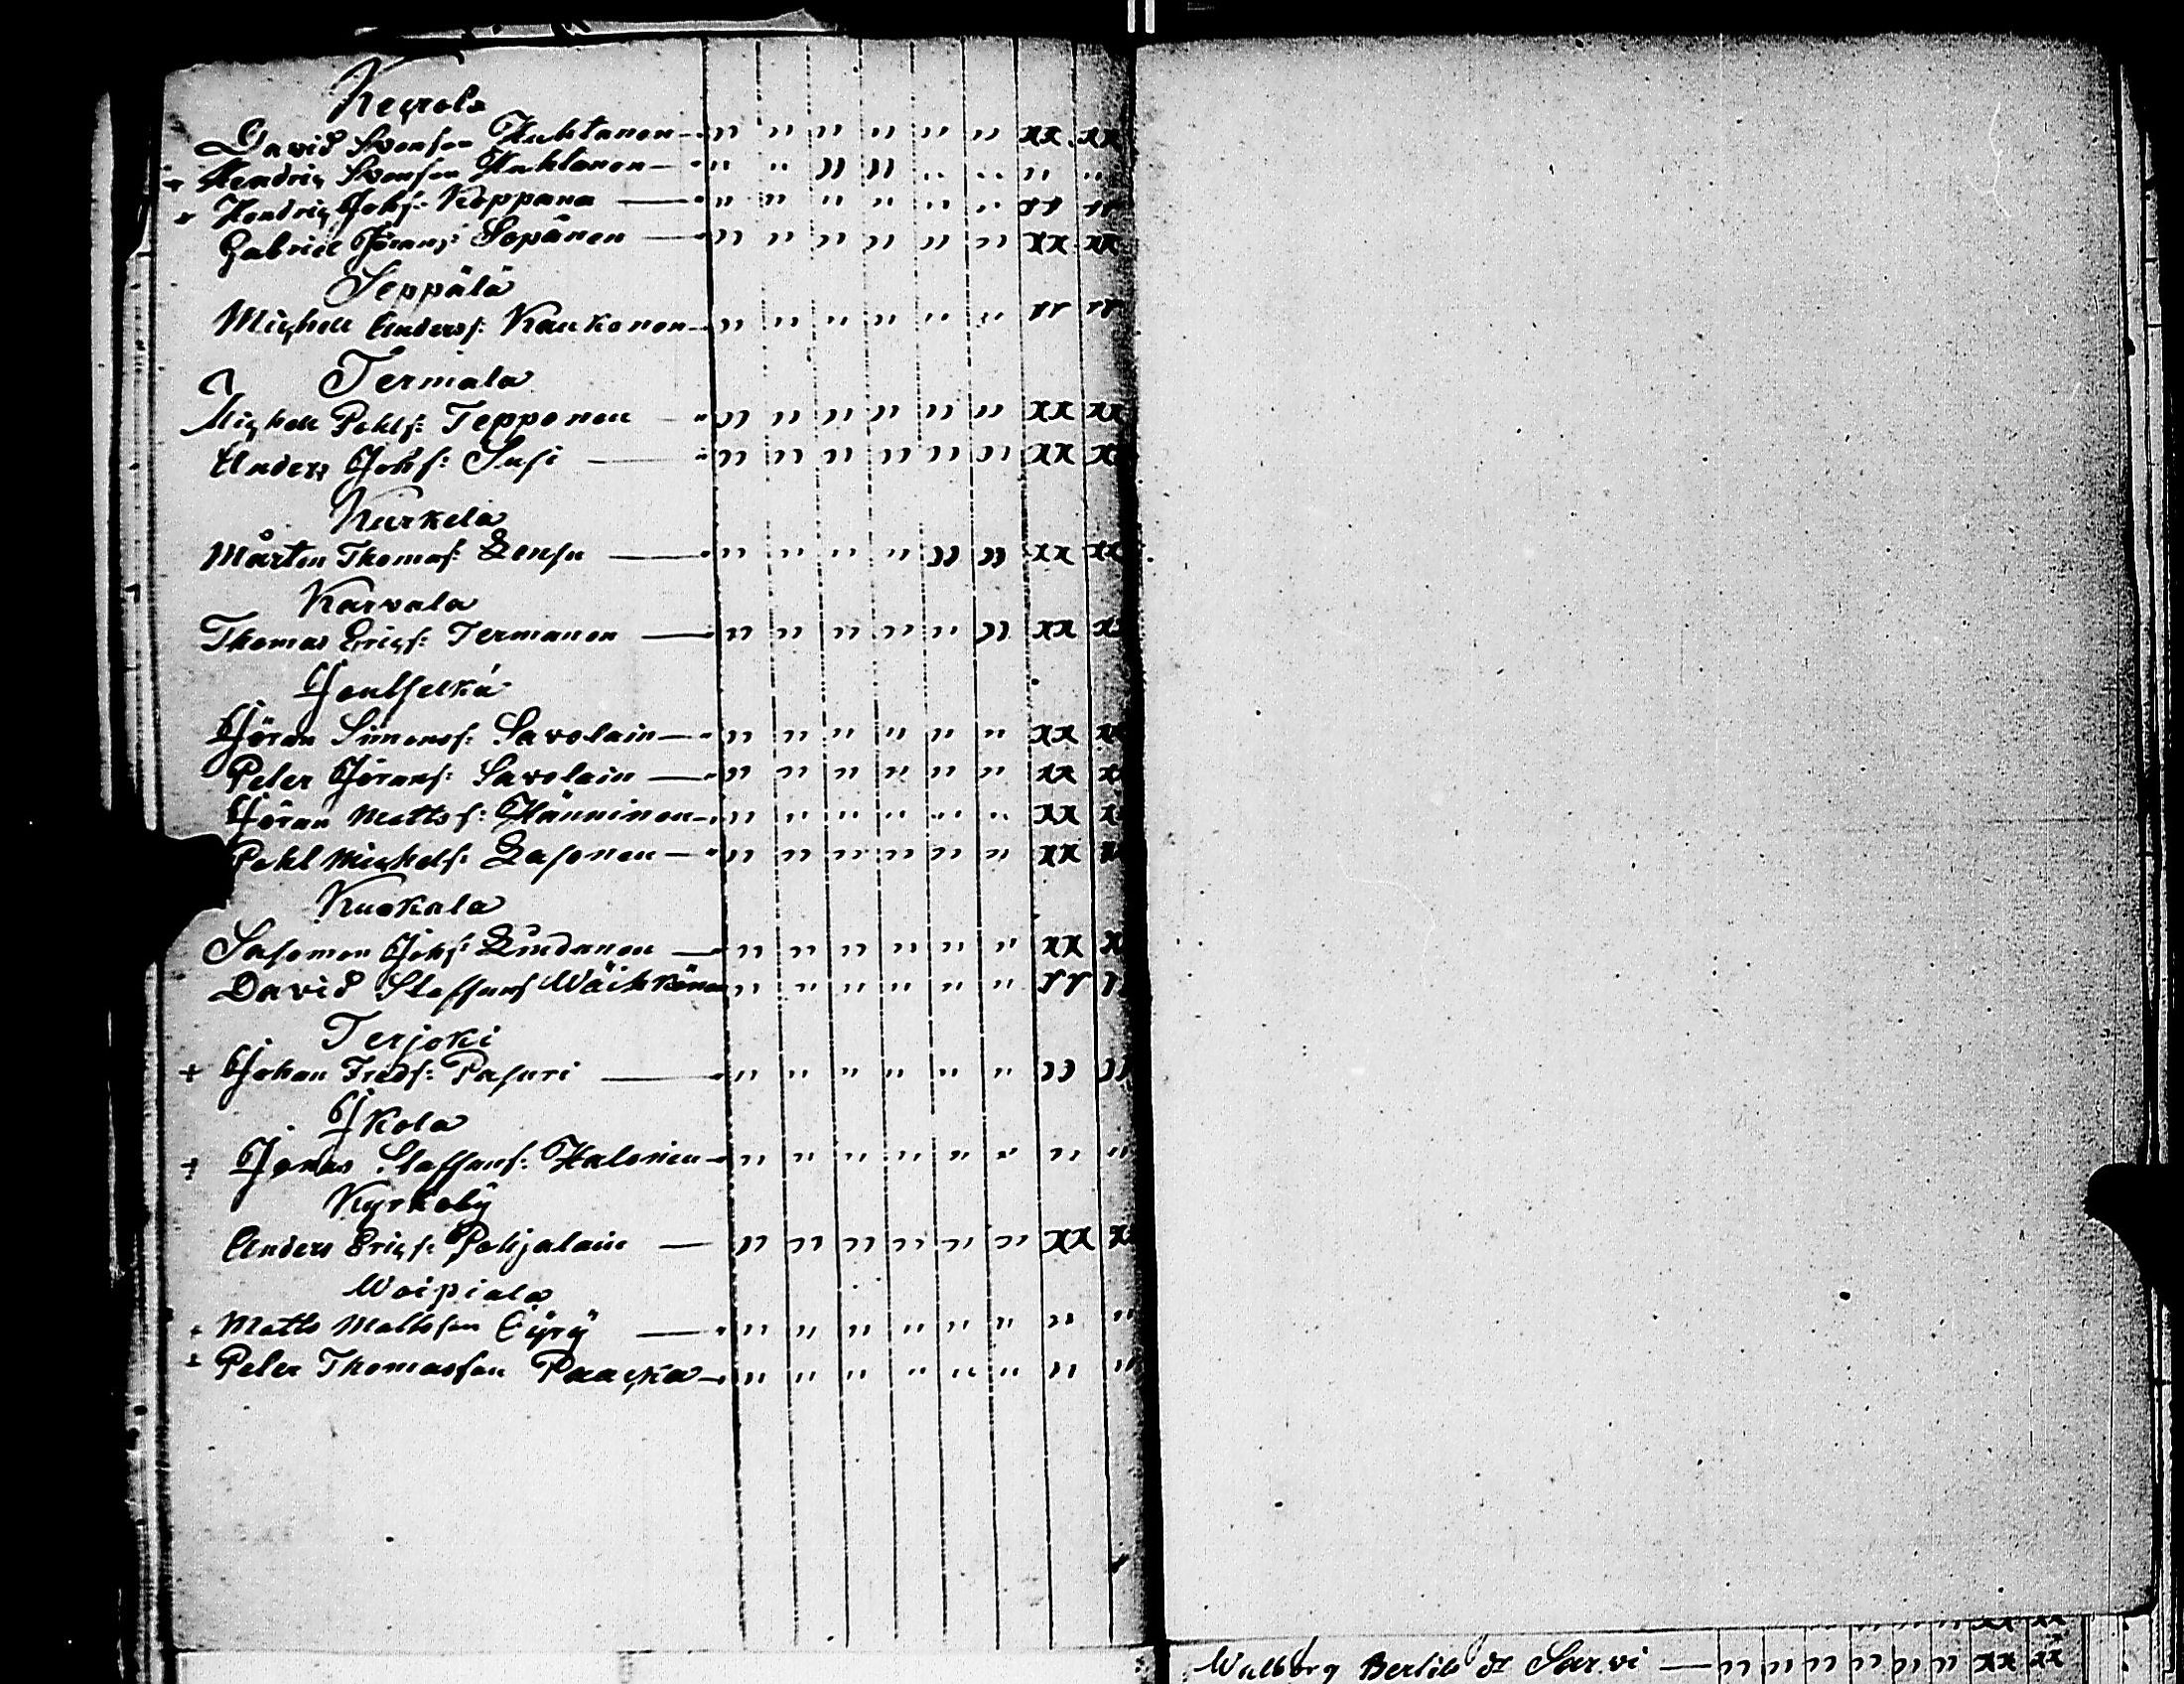 Kegrola
David Svensson Huhtanen — " " " " " " xx xx
+ Hendric Svensson Huhtanen — " " " " " " " "
+ Hendric Johs: Koppana — " " " " " " rr rr
Gabriel Jörans: Sopänen — " " " " " " xx xx
Seppälä
Michell Anders: Kaukonen — " " " " " " rr rr
Termala
Michell Pohls: Tepponen — " " " " " " xx xx
Anders Johs: Susi — " " " " " " xx xx
Kurkela
Mårten Thomas: Lensu — " " " " " " xx xx
Karvala
Thomas Erics: Termanen — " " " " " " xx x
Joutselkä
Jöran Simons: Savolain — " " " " " " xx x
Peter Jörans: Savolain — " " " " " " xx x
Jöran Matts s: Hänninen — " " " " " " xx x
Pohl Michels: Lasonen — " " " " " " xx x
Kuokala
Salomon Johs: Lindanen — " " " " " " xx x
David Staffans Wäihkönen " " " " " " rr r
Terjoki
+ Johan Freds: Pasuri — " " " " " " " "
Ikola
+ Jonas Staffans: Halonen — " " " " " " " "
Kyrkobÿ
Anders Erics: Pohjalain — " " " " " " xx x
Woipiala
+ Matts Mattsson Eÿrÿ — " " " " " " " "
+ Peter Thomasson Paacka — " " " " " " " "
Walborg Bertils dr Sarvi — " " " " " " xx xx